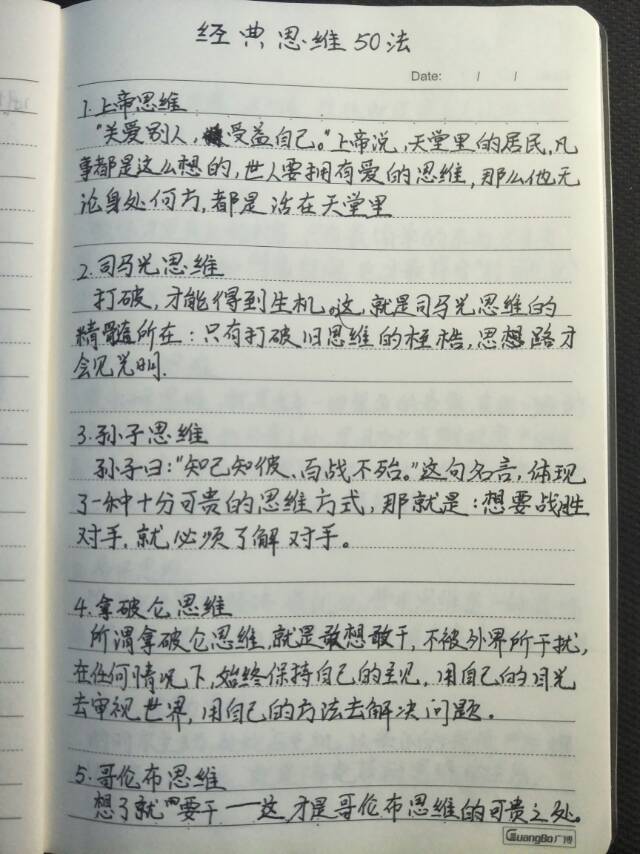 经典思维50法
Date: / /
1.上帝思维
"关爱别人,受益自己。"上帝说,天堂里的居民,凡
事都是这么想的,世人要拥有爱的思维,那么他无
论身处何方,都是活在天堂里
2.司马光思维
打破,才能得到生机。这,就是司马光思维的
精髓所在:只有打破旧思维的桎梏,思想路才
会见光明.
3.孙子思维
孙子曰:"知己知彼、百战不殆。"这句名言,体现
了一种十分可贵的思维方式,那就是:想要战胜
对手,就必须了解对手。
4.拿破仑思维
所谓拿破仑思维,就是敢想敢干,不被外界所干扰,
在任何情况下,始终保持自己的主见,用自己的目光
去审视世界,用自己的方法去解决问题。
5.哥伦布思维
想了就要干——这,才是哥伦布思维的可贵之处。
GuangBo广博